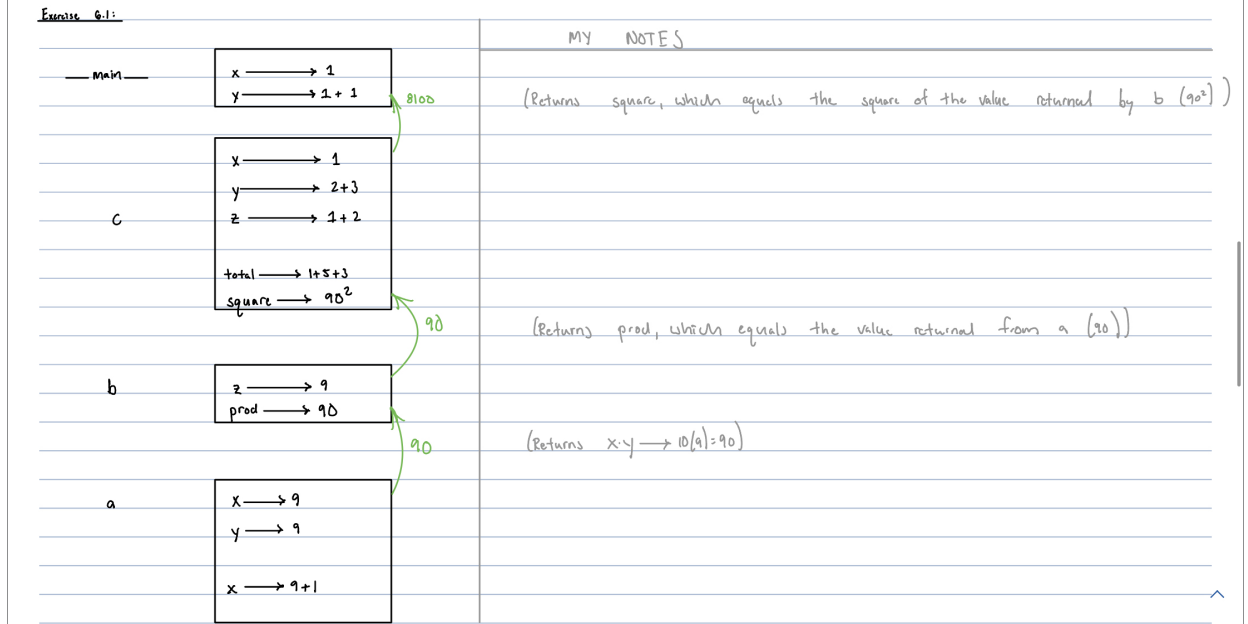 Exercise 6.1:
MY NOTES
__main__
x → 1
y → 1 + 1
8100
(Returns square, which equals the square of the value returned by b (90²))
c
x → 1
y → 2+3
z → 1+2
total → 1+5+3
square → 90²
90
(Returns prod, which equals the value returned from a (90))
b
z → 9
prod → 90
90
(Returns x·y → 10(9)=90)
a
x → 9
y → 9
x → 9+1